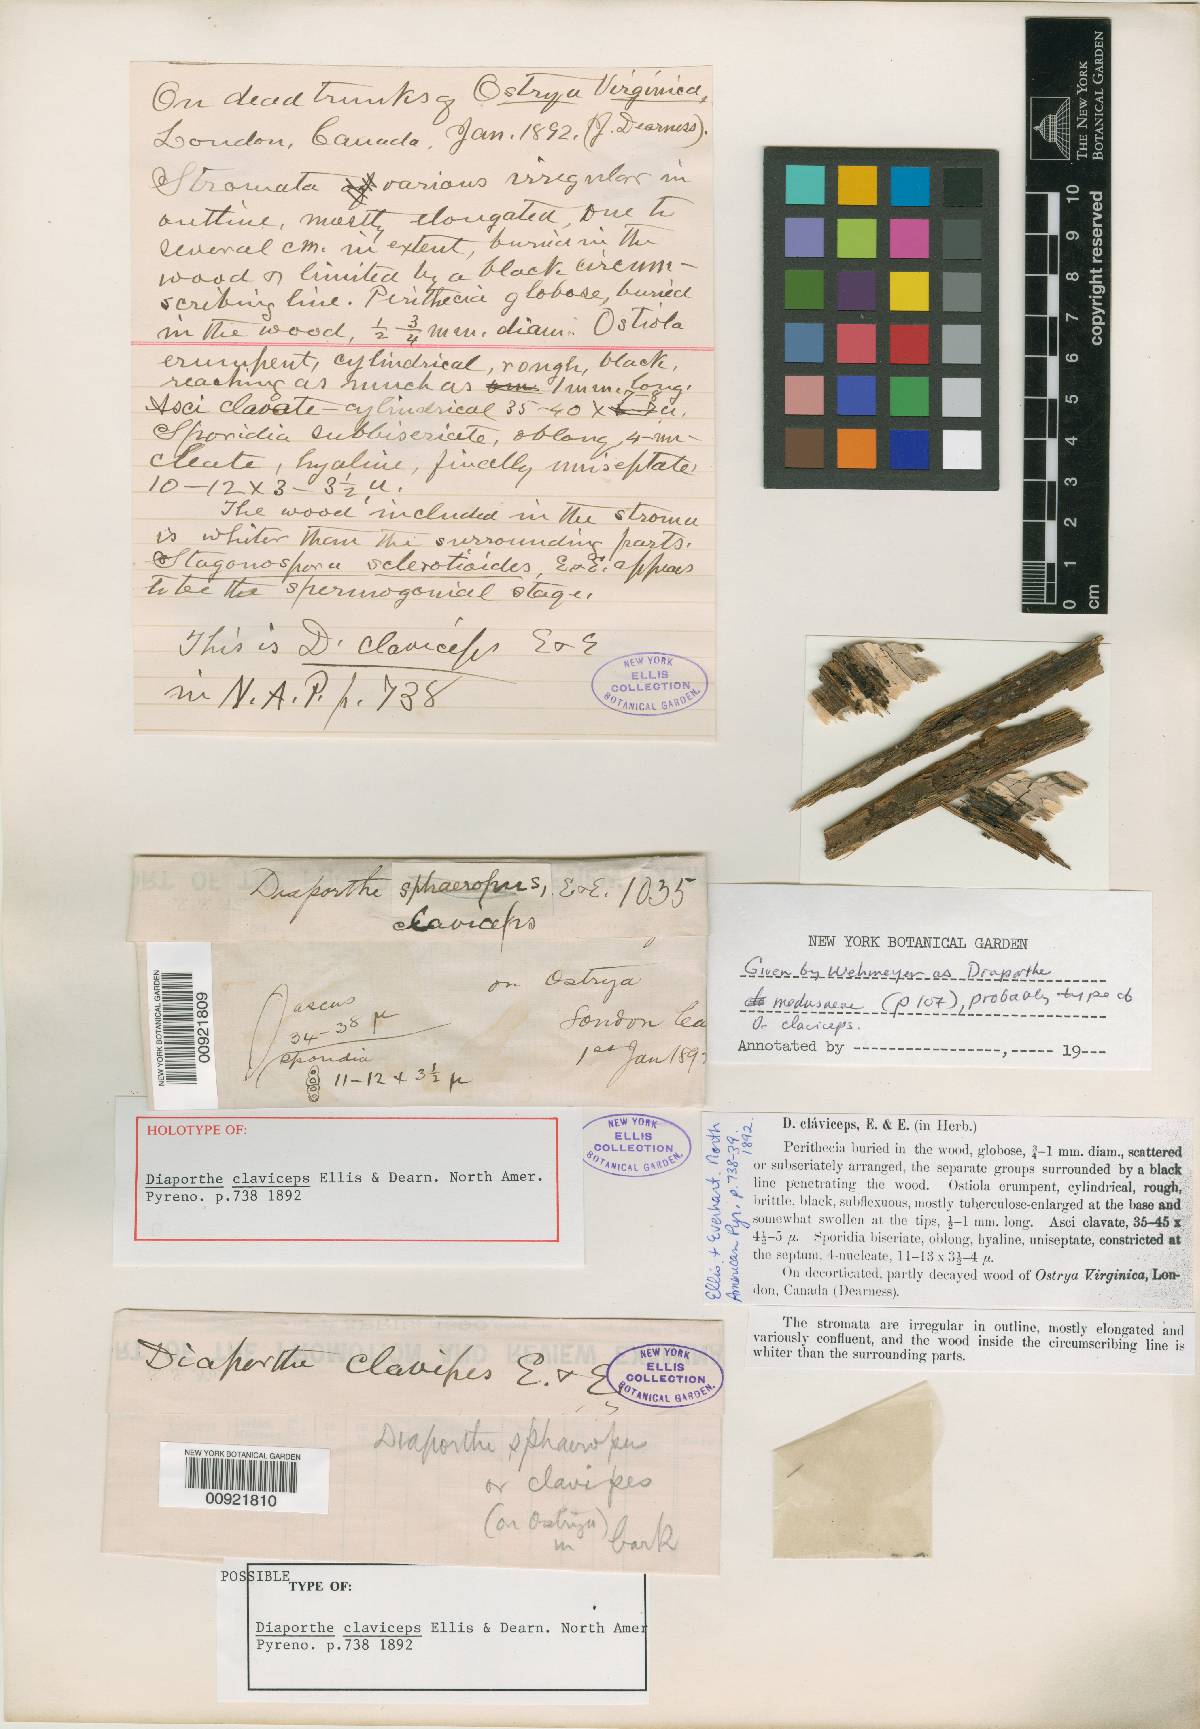 On dead trunks of Ostrya Virginica,
London, Canada, Jan. 1892. (J. Dearness).
Stromata various irregular in
outline, mostly elongated, one to
several cm. in extent, buried in the
wood & limited by a black circum-
scribing line. Perithecia globose, buried
in the wood, ½-¾ mm. diam. Ostiola
erumpent, cylindrical, rough, black,
reaching as much as 1 mm. long.
Asci clavate-cylindrical 35-40 x
Sporidia subbiseriate, oblong, 4-nu-
cleate, hyaline, finally uniseptate
10-12 x 3-3½ µ.
The wood included in the stroma
is whiter than the surrounding parts.
Stagonospora sclerotioides, E&E. appears
to be the spermogonial stage.
This is D. claviceps E & E
in N. A. P. p. 738
NEW YORK
ELLIS
COLLECTION
BOTANICAL GARDEN.
THE NEW YORK
BOTANICAL GARDEN
copyright reserved
10 9 8 7 6 5 4 3 2 1 0
cm
Diaporthe sphaeropus, E&E. 1035
claviceps
on Ostrya
London Ca
1st Jan 189
ascus
34-38 µ
sporidia
11-12 x 3½ µ
NEW YORK BOTANICAL GARDEN
00921809
NEW YORK BOTANICAL GARDEN
Given by Wehmeyer as Diaporthe
medusaea (p 107), probably type of
D. claviceps.
Annotated by ----------------, ----- 19---
HOLOTYPE OF:
Diaporthe claviceps Ellis & Dearn. North Amer.
Pyreno. p.738 1892
NEW YORK
ELLIS
COLLECTION
BOTANICAL GARDEN.
Ellis & Everhart. North
American Pyr. p. 738-39.
1892.
D. cláviceps, E. & E. (in Herb.)
Perithecia buried in the wood, globose, ¾-1 mm. diam., scattered
or subseriately arranged, the separate groups surrounded by a black
line penetrating the wood. Ostiola erumpent, cylindrical, rough,
brittle, black, subflexuous, mostly tuberculose-enlarged at the base and
somewhat swollen at the tips, ½-1 mm. long. Asci clavate, 35-45 x
4½-5 µ. Sporidia biseriate, oblong, hyaline, uniseptate, constricted at
the septum, 4-nucleate, 11-13 x 3½-4 µ.
On decorticated, partly decayed wood of Ostrya Virginica, Lon-
don, Canada (Dearness).
The stromata are irregular in outline, mostly elongated and
variously confluent, and the wood inside the circumscribing line is
whiter than the surrounding parts.
Diaporthe clavipes E. & E.
NEW YORK
ELLIS
COLLECTION
BOTANICAL GARDEN.
Diaporthe sphaeropus
or clavipes
(on Ostrya)
in bark
NEW YORK BOTANICAL GARDEN
00921810
POSSIBLE
TYPE OF:
Diaporthe claviceps Ellis & Dearn. North Amer
Pyreno. p.738 1892